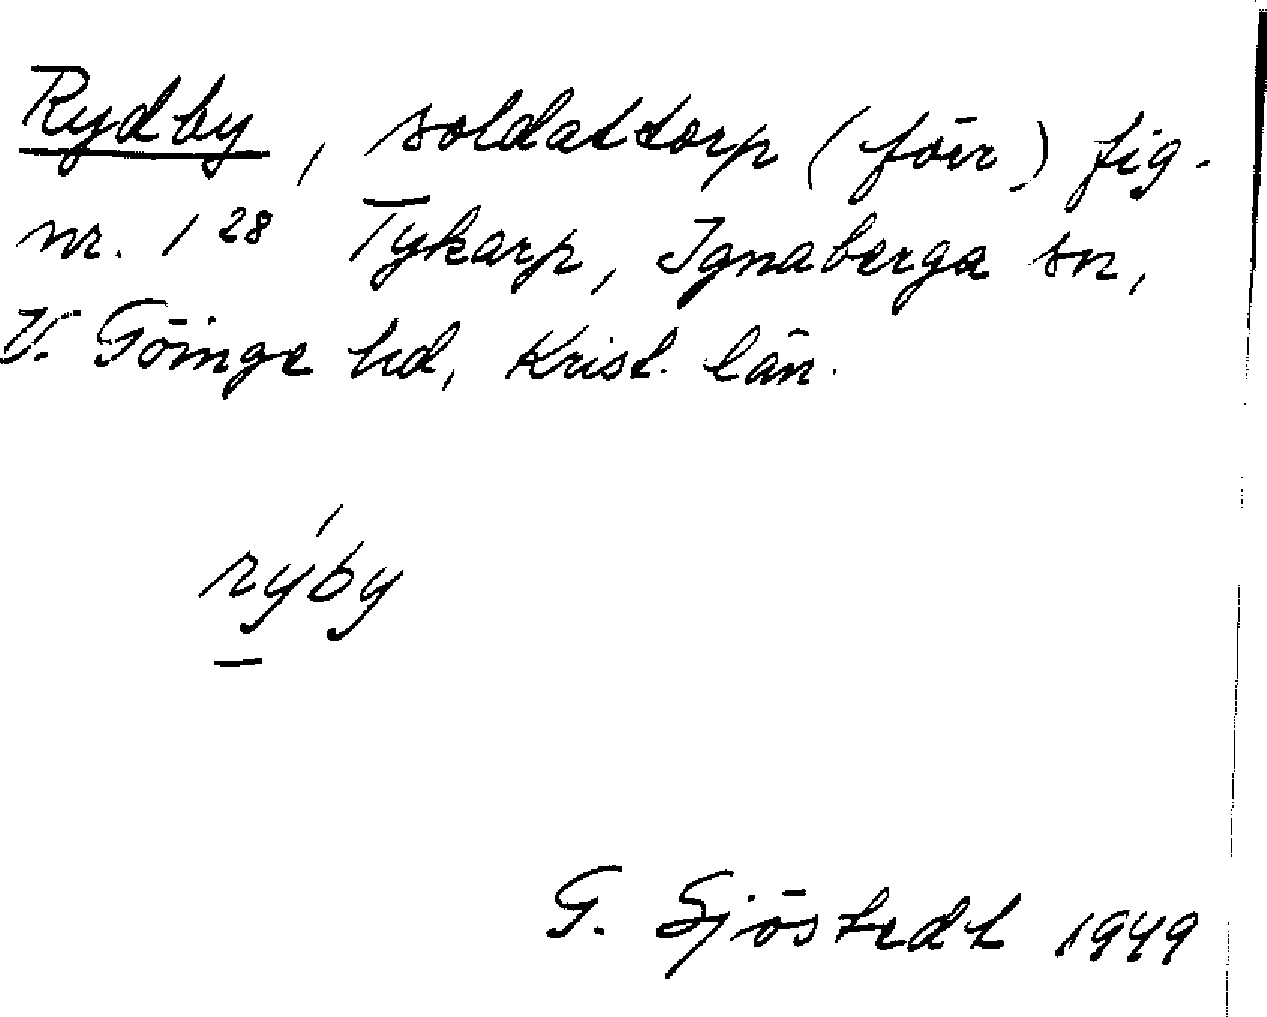 Rydby, soldattorp (förr) fig.
nr. 1 28 Tykarp, Ignaberga sn,
V. Göinge hd, Krist. län.
rýby
G. Sjöstedt 1949